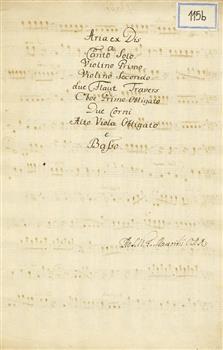 1156
Aria ex Dis
a
Canto Solo
Violino Primo
Violino Secondo
due Flaut Travers
Oboe Primo Obligato
Due Corni
Alto Viola Obligato
e
Basso
Mauritii